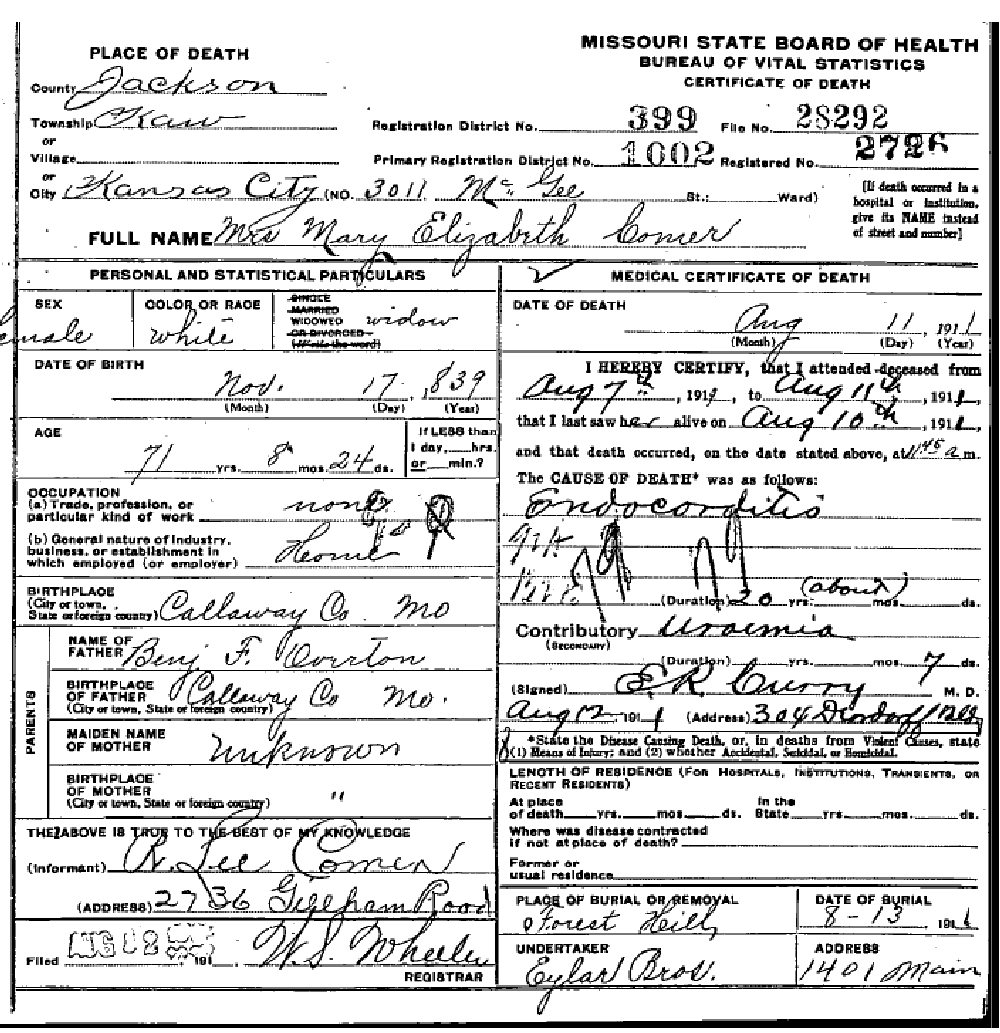 PLACE OF DEATH
County Jackson
Township Kaw
or
Village
or
City Kansas City (NO. 3011 Mc Gee St.; Ward)
MISSOURI STATE BOARD OF HEALTH
BUREAU OF VITAL STATISTICS
CERTIFICATE OF DEATH
Registration District No. 399 File No. 28292
Primary Registration District No. 1002 Registered No. 2726
[If death occurred in a
hospital or institution,
give its NAME instead
of street and number]
FULL NAME Mrs Mary Elizabeth Comer
PERSONAL AND STATISTICAL PARTICULARS
SEX
emale
COLOR OR RACE
White
SINGLE
MARRIED
WIDOWED
OR DIVORCED
(Write the word)
widow
DATE OF BIRTH
Nov. 17, 839
(Month) (Day) (Year)
AGE
71 yrs. 8 mos. 24 ds.
If LESS than
1 day, hrs.
or min.?
OCCUPATION
(a) Trade, profession, or
particular kind of work none
(b) General nature of Industry,
business, or establishment in
which employed (or employer) Home
BIRTHPLACE
(City or town,
State or foreign country) Callaway Co Mo
PARENTS
NAME OF
FATHER Benj F. Overton
BIRTHPLACE
OF FATHER
(City or town, State or foreign country) Callaway Co Mo.
MAIDEN NAME
OF MOTHER Unknown
BIRTHPLACE
OF MOTHER
(City or town, State or foreign country) "
THE ABOVE IS TRUE TO THE BEST OF MY KNOWLEDGE
(Informant) R. Lee Comer
(ADDRESS) 2736 Gillham Road
Filed AUG 12 191 W. S. Wheeler
REGISTRAR
MEDICAL CERTIFICATE OF DEATH
DATE OF DEATH
Aug 11, 1911
(Month) (Day) (Year)
I HEREBY CERTIFY, that I attended deceased from
Aug 7th, 1911, to Aug 11th 1911,
that I last saw her alive on Aug 10th, 1911,
and that death occurred, on the date stated above, at 11 45 a m.
The CAUSE OF DEATH* was as follows:
Endocorditis
(about)
(Duration) 20 yrs. mos. ds.
Contributory Uraemia
(SECONDARY)
(Duration) yrs. mos. 7 ds.
(Signed) E. R. Curry M. D.
Aug 12 1911 (Address) 304 Bldg
*State the Disease Causing Death, or, in deaths from Violent Causes, state
(1) Means of Injury; and (2) whether Accidental, Suicidal, or Homicidal.
LENGTH OF RESIDENCE (FOR HOSPITALS, INSTITUTIONS, TRANSIENTS, OR
RECENT RESIDENTS)
At place In the
of death yrs. mos. ds. State yrs. mos. ds.
Where was disease contracted
if not at place of death?
Former or
usual residence
PLACE OF BURIAL OR REMOVAL
Forest Hill
DATE OF BURIAL
8-13, 1911
UNDERTAKER
Eylar Bros.
ADDRESS
1401 Main